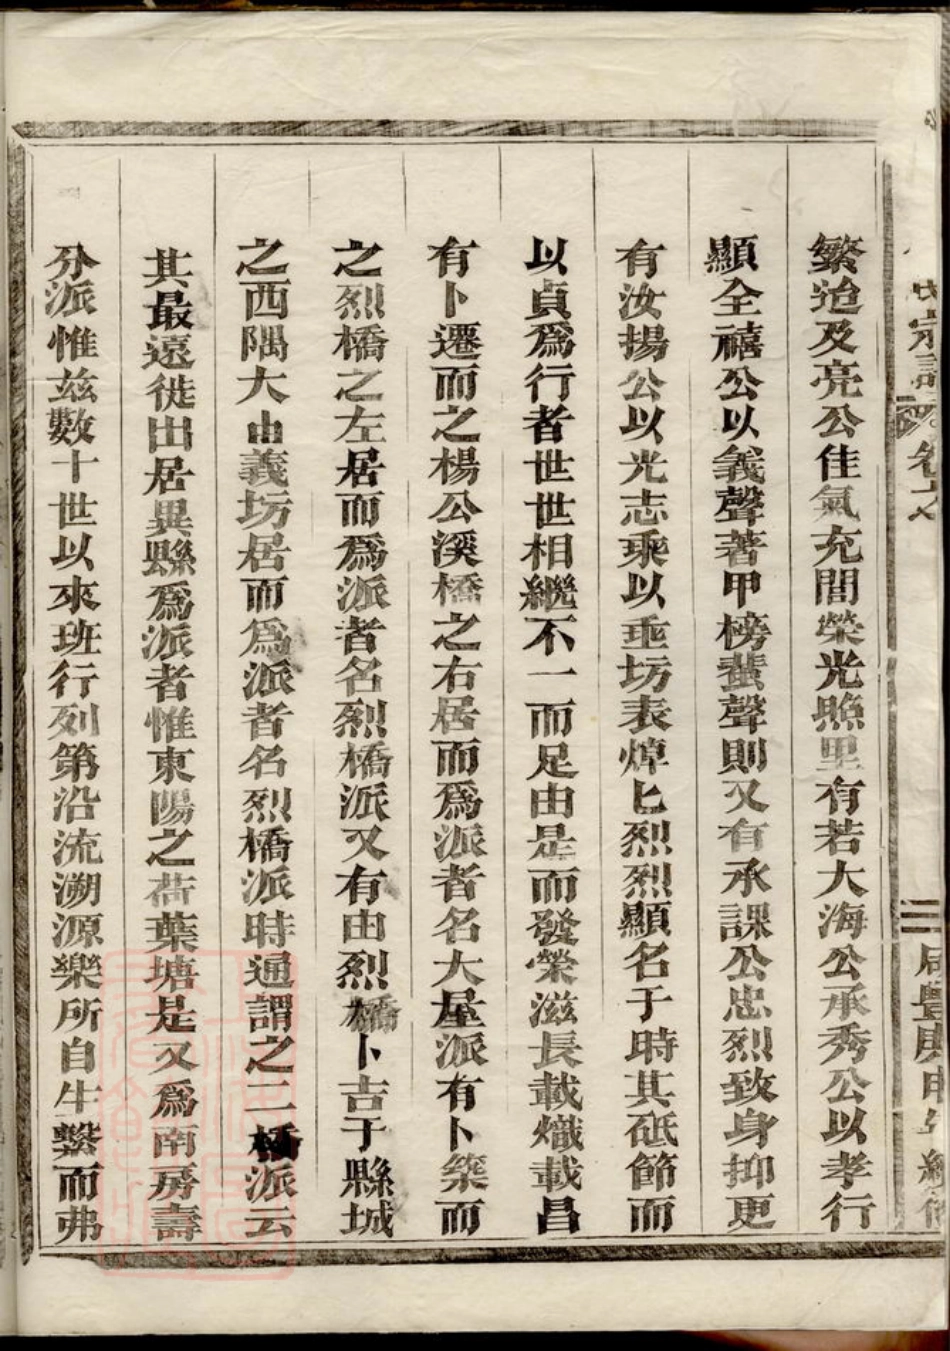 繁迨及亮公佳氣充閭榮光照里有若大海公承秀公以孝行
顯全禧公以義聲著甲榜蜚聲則又有承課公忠烈致身抑更
有汝揚公以光志乘以垂坊表焯匕烈烈顯名于時其砥節而
以貞爲行者世世相繼不一而足由是而發榮滋長載熾載昌
有卜遷而之楊公溪橋之右居而爲派者名大屋派有卜築而
之烈橋之左居而爲派者名烈橋派又有由烈橋卜吉于縣城
之西隅大由義坊居而爲派者名烈橋派時通謂之二橋派云
其最遠徙出居異縣爲派者惟東陽之荷葉塘是又爲南房壽
分派惟茲數十世以來班行列第沿流溯源樂所自生繫而弗
氏宗譜 卷之
三 咸豐庚申年續修